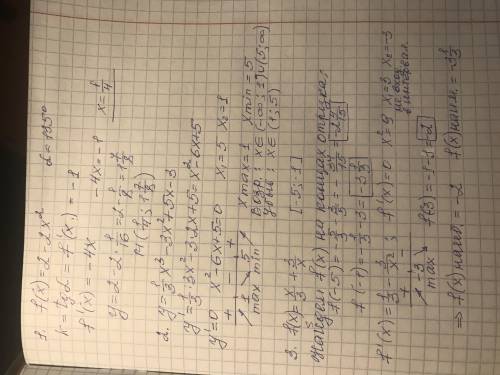 1. f(x) = 2 - 2x² α = 135°
k = tg α = f'(x₀) = -1
f'(x) = -4x -4x = -1 x = 1/4
y = 2 - 2·1/16 = 2 - 1/8 = 1 7/8
M(1/4; 1 7/8)
2. y = 1/3 x³ - 3x² + 5x - 3
y' = 1/3·3x² - 3·2x + 5 = x² - 6x + 5
y' = 0 x² - 6x + 5 = 0 x₁ = 5 x₂ = 1
+ - +
1 5
max min
xmax = 1 xmin = 5
возр: x ∈ (-∞; 1) ∪ (5; ∞)
убыв: x ∈ (1; 5)
3. f(x) = x/3 + 3/x [-5; -1]
Найдем f(x) на концах отрезка:
f(-5) = -5/3 - 3/5 = -34/15 = -2 4/15
f(-1) = -1/3 - 3 = -3 1/3
f'(x) = 1/3 - 3/x²; f'(x) = 0 x² = 9 x = 3 x₂ = -3
не вход. в интервал
+ -
-3
max
f(-3) = -1 - 1 = -2
⇒ f(x) наиб. = -2 f(x) наим. = -3 1/3